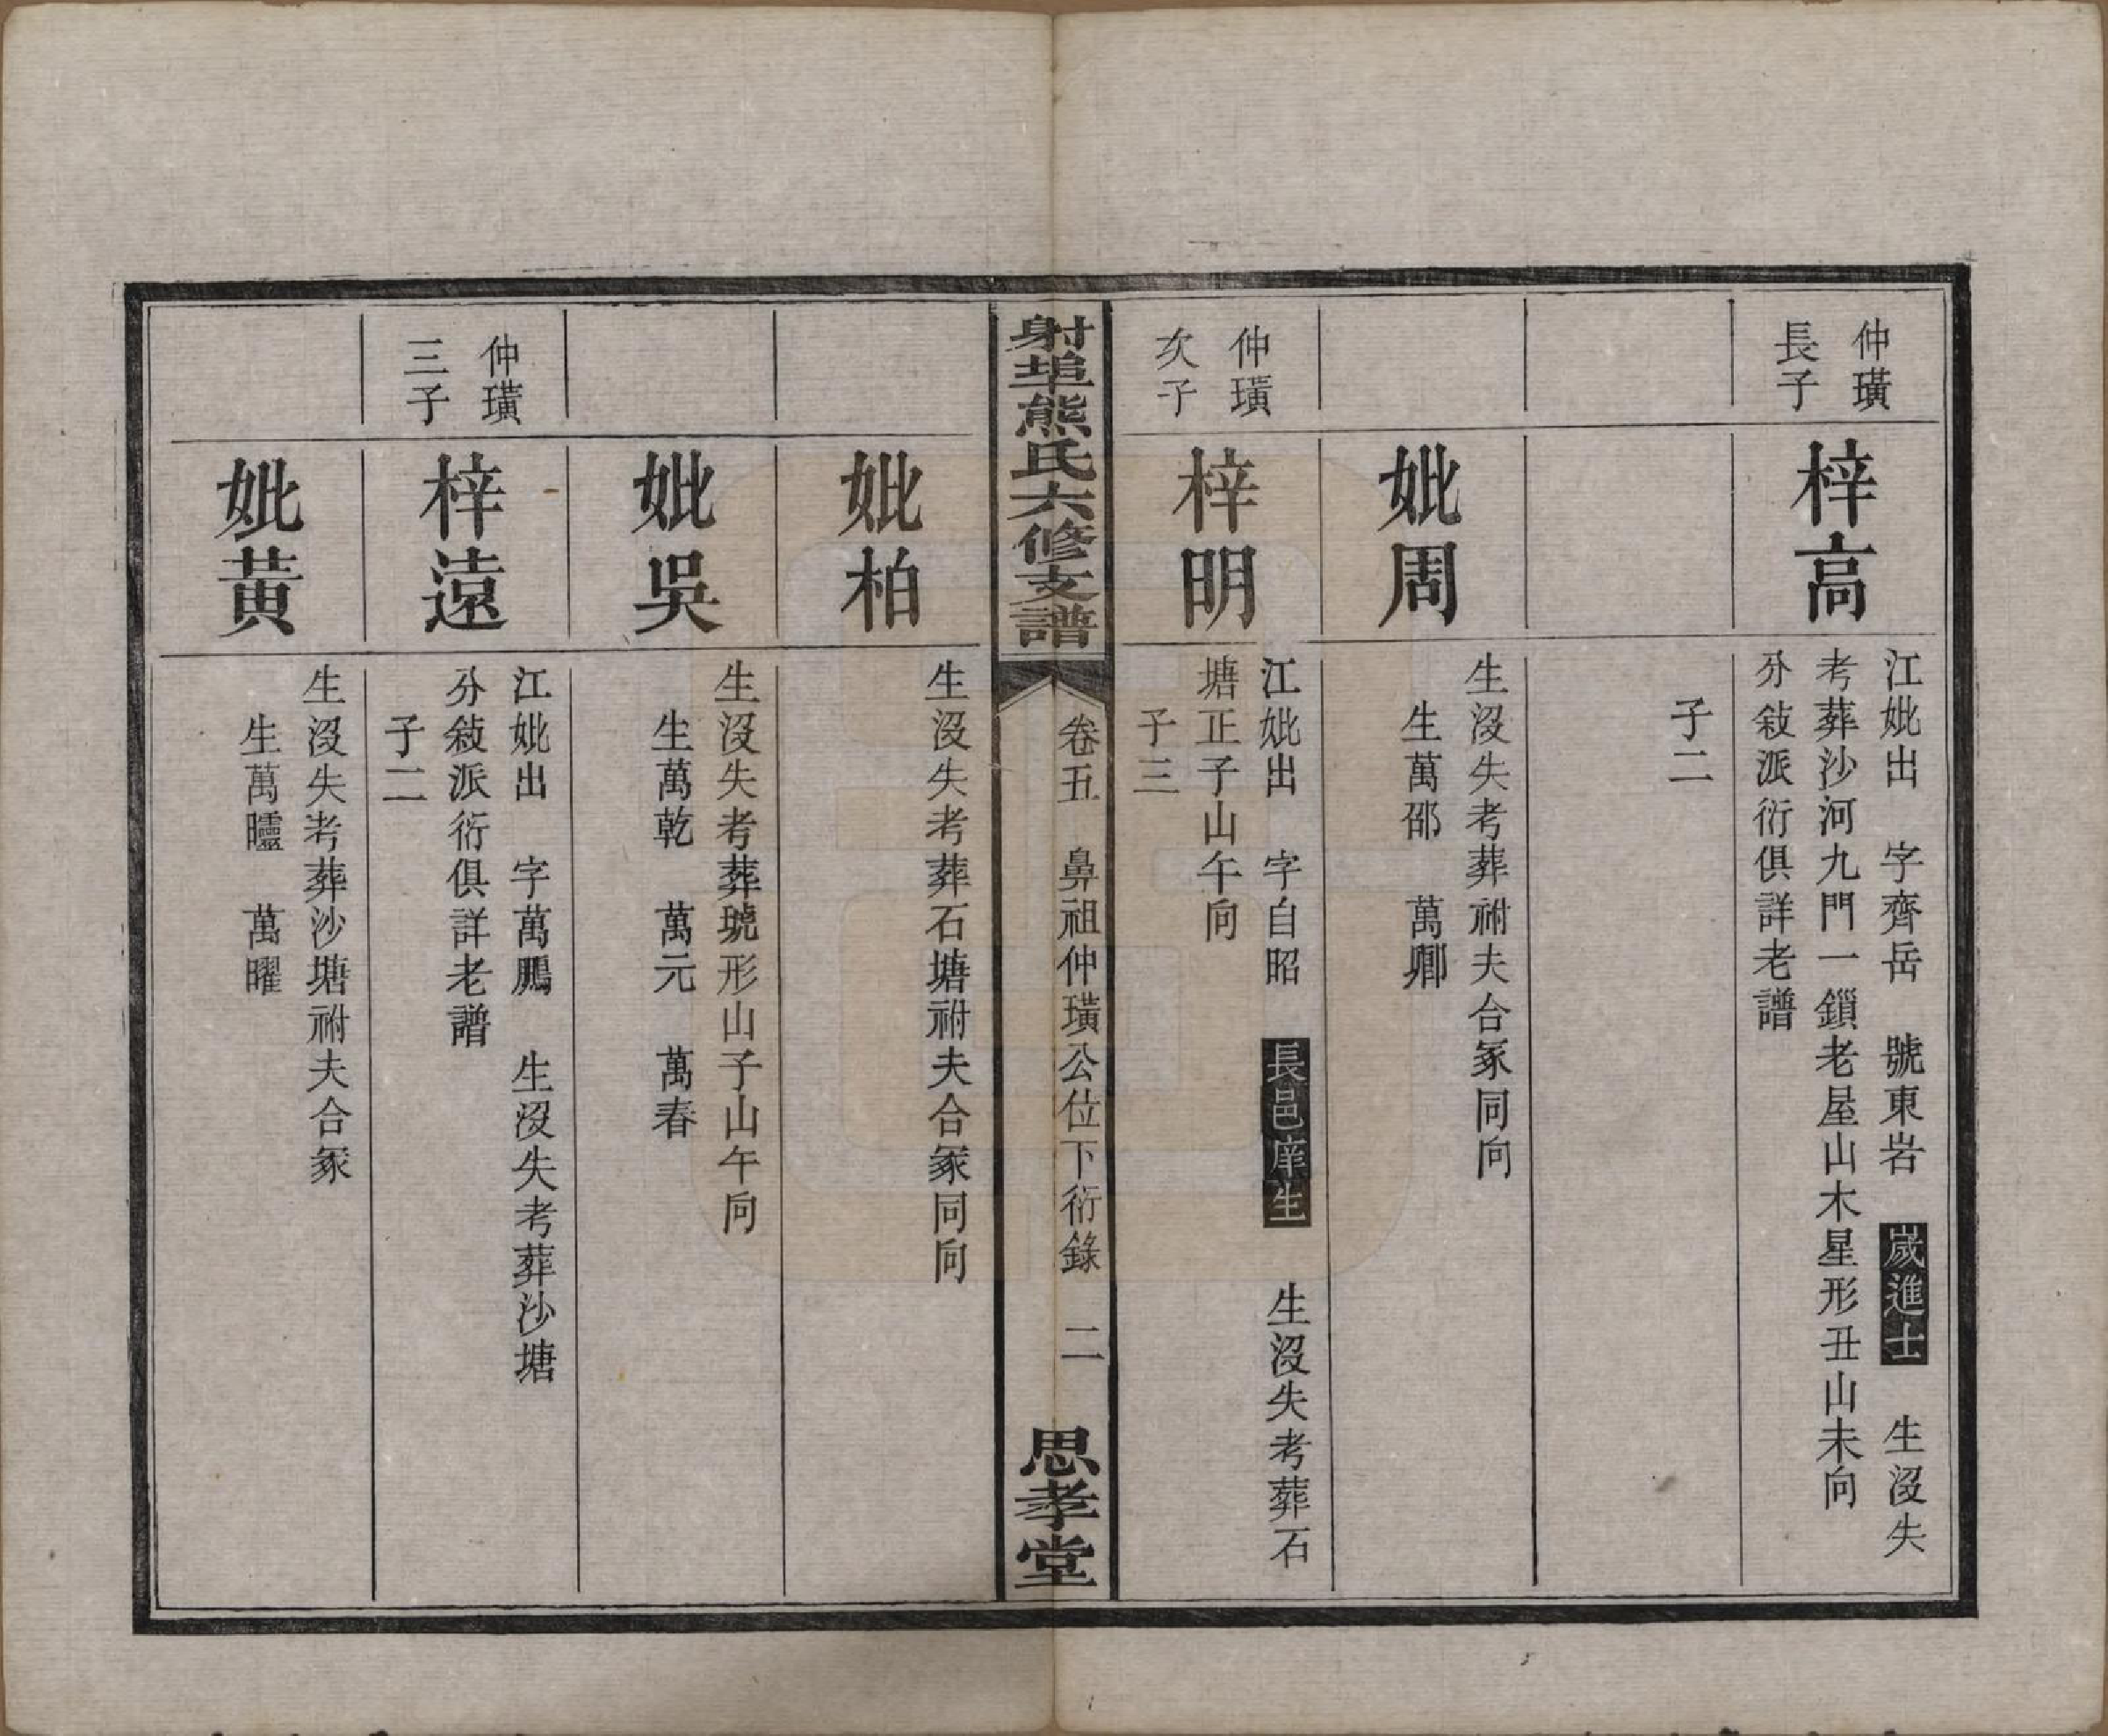 仲璜
長子
梓高
江妣出　字齊岳　號東岩　歲進士　生沒失
考葬沙河九門一鎖老屋山木星形丑山未向
分敍派衍俱詳老譜
子二
妣周
生沒失考葬祔夫合冢同向
生萬邵　萬卿
仲璜
次子
梓明
江妣出　字自昭　長邑庠生　生沒失考葬石
塘正子山午向
子三
射埠熊氏六修支譜
卷五　鼻祖仲璜公位下衍錄　二
思孝堂
妣柏
生沒失考葬石塘祔夫合冢同向
妣吳
生沒失考葬琥形山子山午向
生萬乾　萬元　萬春
仲璜
三子
梓遠
江妣出　字萬鵬　生沒失考葬沙塘
分敍派衍俱詳老譜
子二
妣黃
生沒失考葬沙塘祔夫合冢
生萬　萬曜